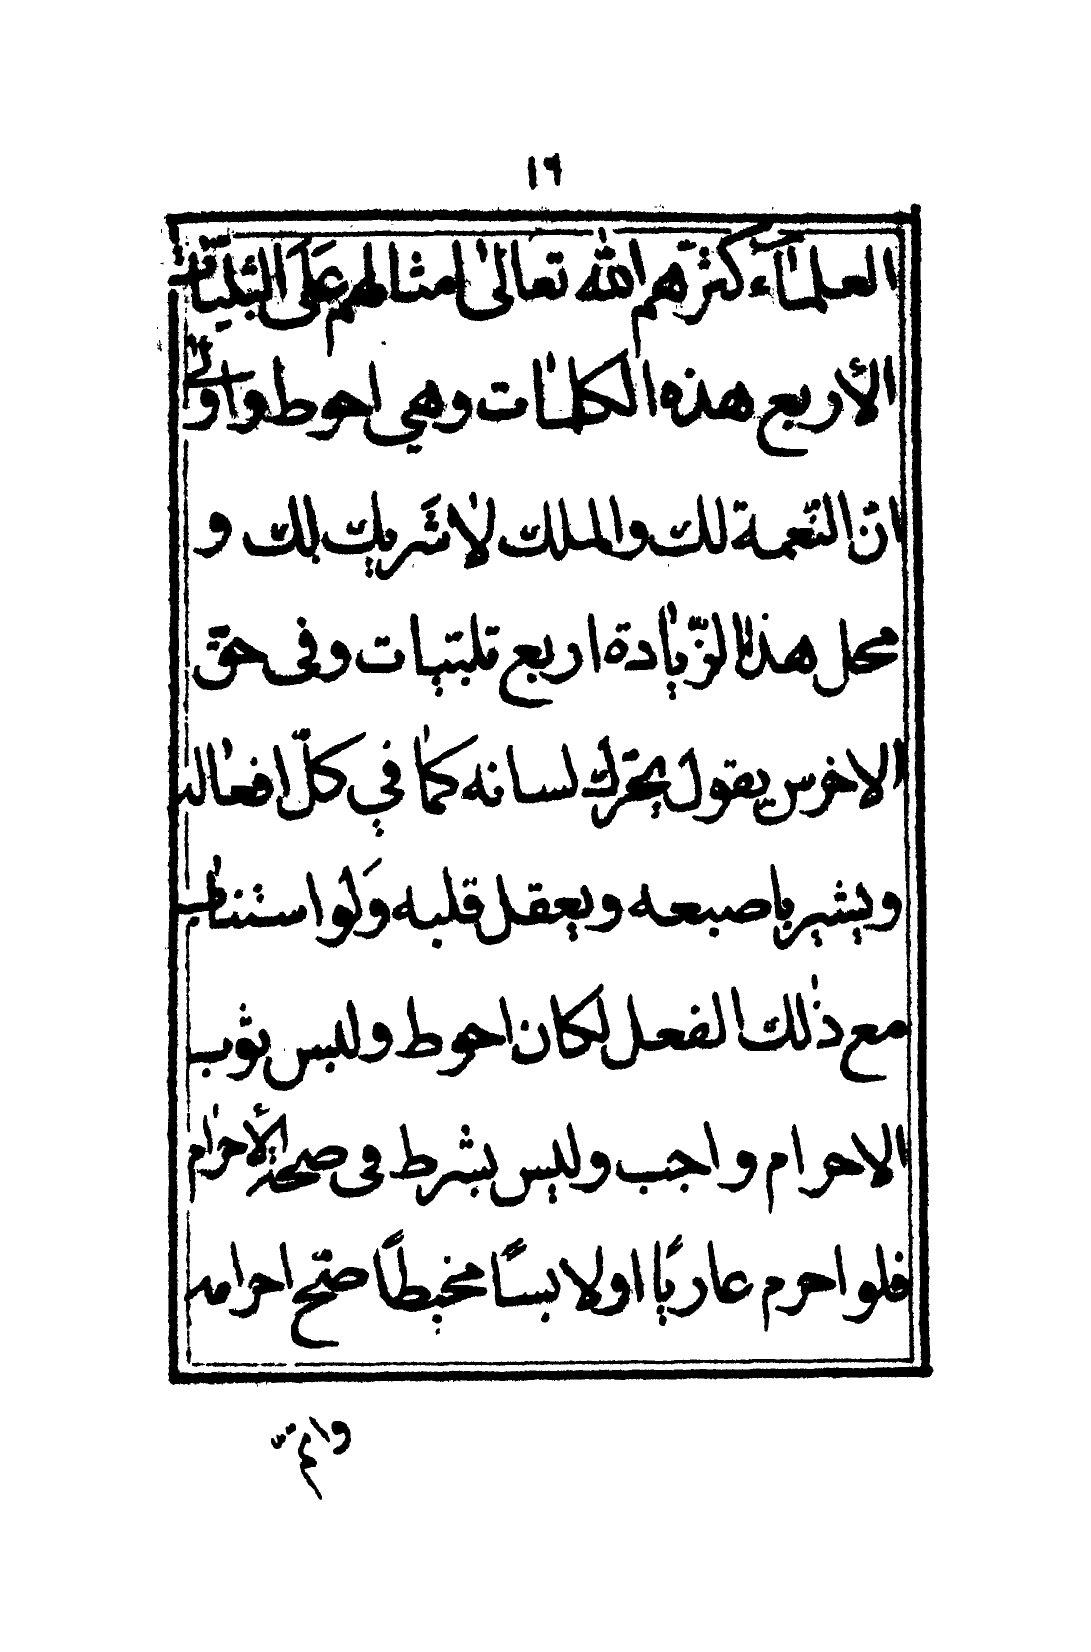 ١٩
العلماء كثّرهم الله تعالى امثالهم على التلبيات
الأربع هذه الكلمات وهي احوط واولى
انّ النّعمة لك والملك لا شريك لك و
محل هذا الزّيادة اربع تلبيات وفى حق
الاخرس يقول يحرّك لسانه كما في كلّ افعاله
ويشير باصبعه ويعقل قلبه ولو استناب
مع ذلك الفعل لكان احوط وليس ثوب
الاحرام واجب وليس بشرط فى صحة الأحرام
فلو احرم عاريًا او لابسًا مخيطًا صحّ احرامه